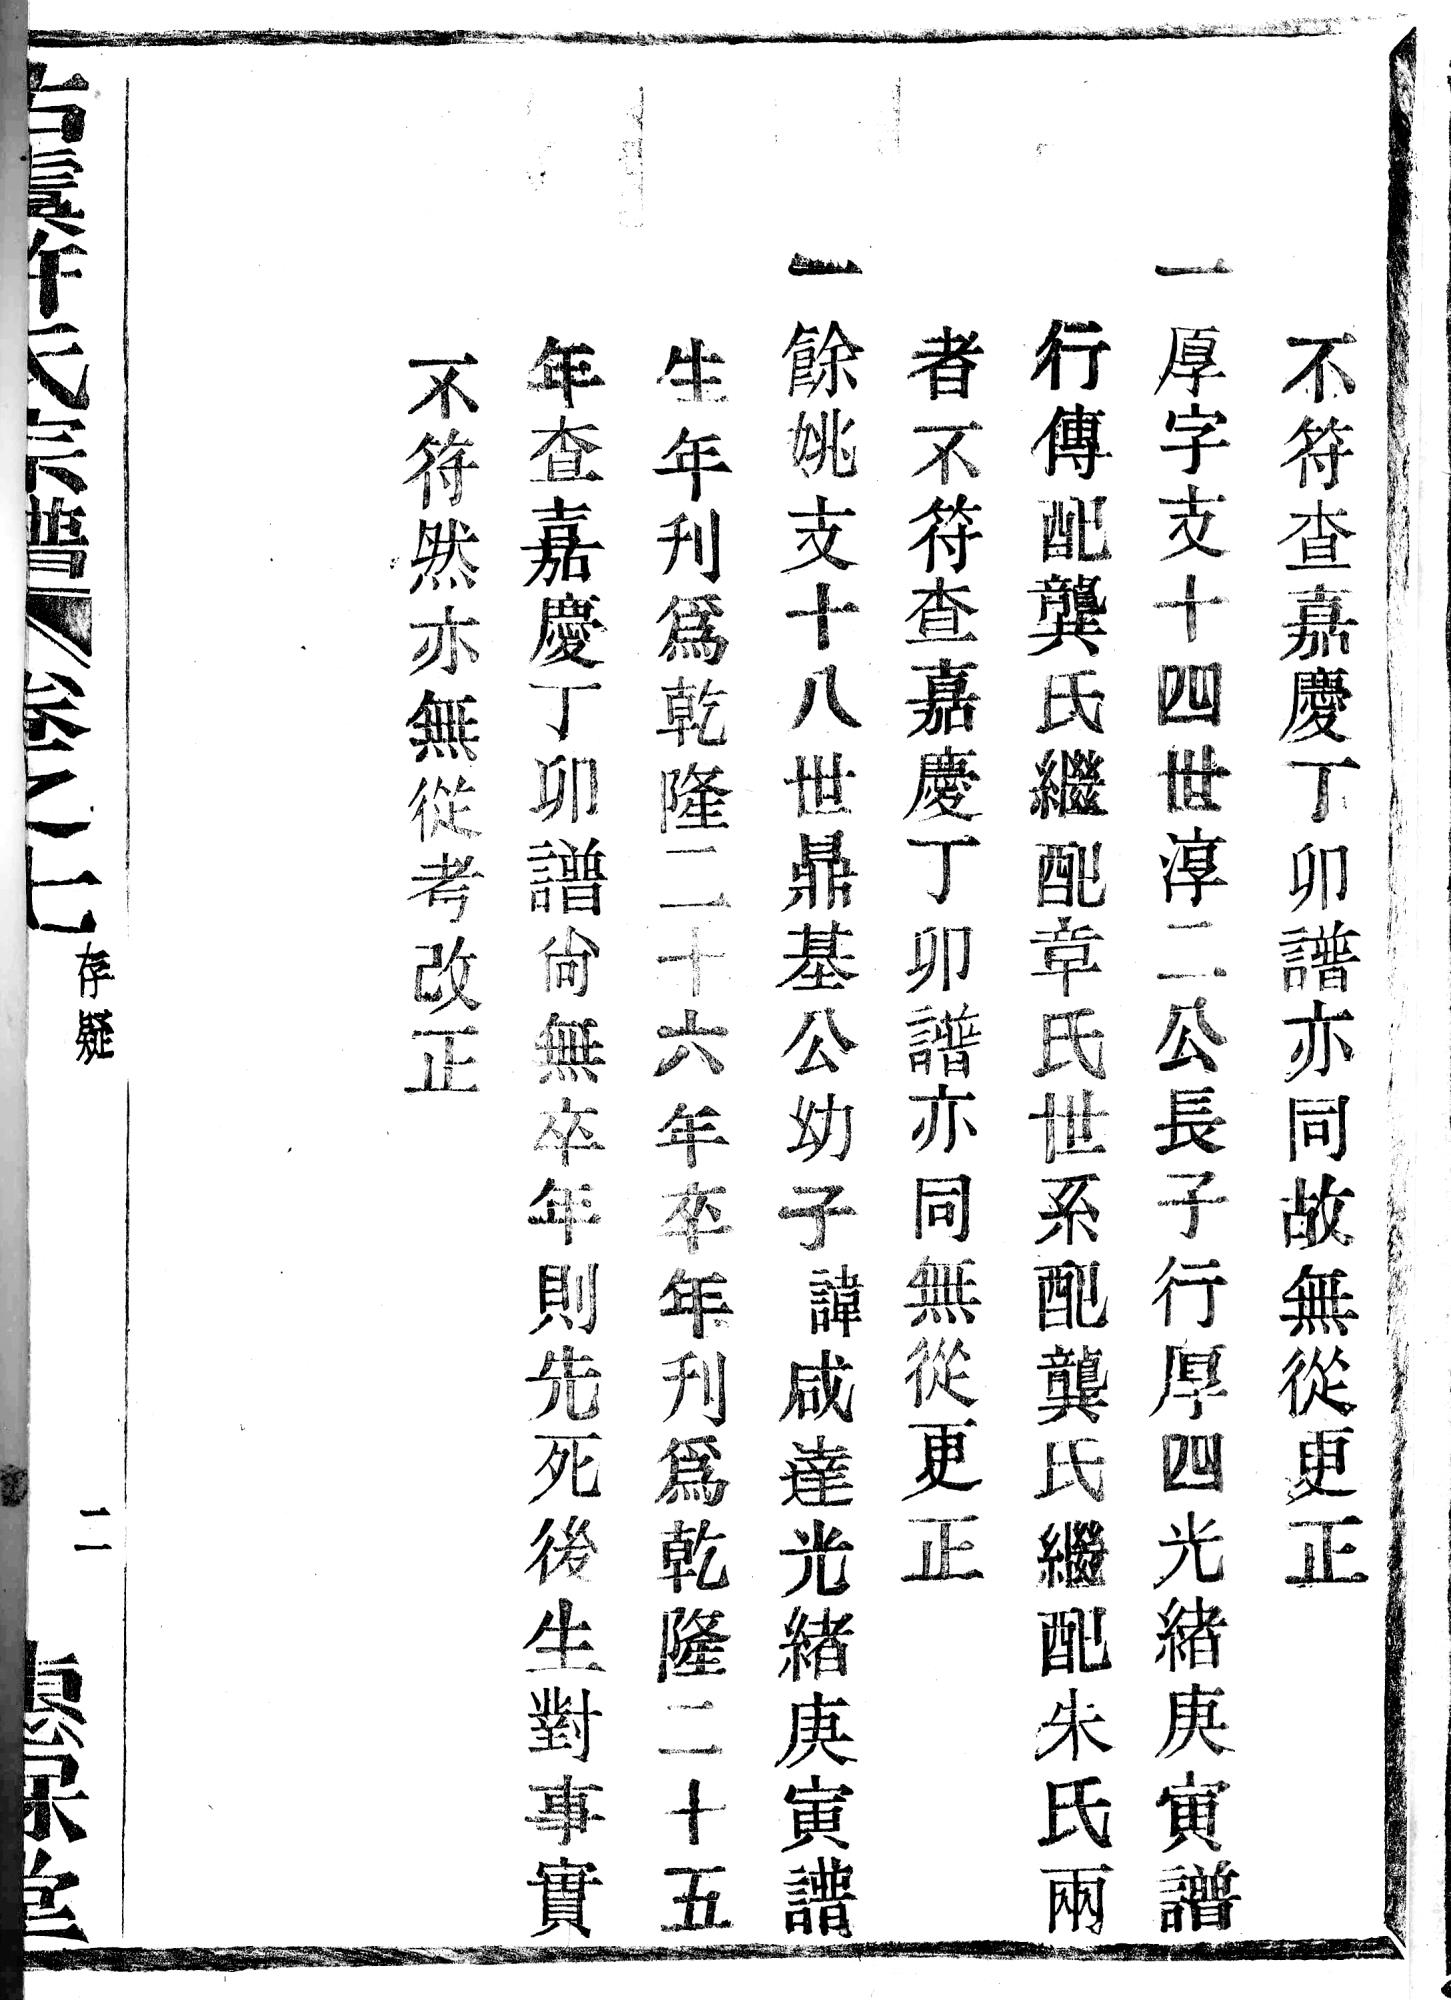 不符查嘉慶丁卯譜亦同故無從更正
一厚字支十四世淳二公長子行厚四光緒庚寅譜
行傳配龔氏繼配章氏世系配龔氏繼配朱氏兩
者不符查嘉慶丁卯譜亦同無從更正
一餘姚支十八世鼎基公幼子諱咸達光緒庚寅譜
生年刋爲乾隆二十六年卒年刋爲乾隆二十五
年查嘉慶丁卯譜尙無卒年則先死後生對事實
不符然亦無從考改正
古虞許氏宗譜卷之七
存疑
二
惠保堂